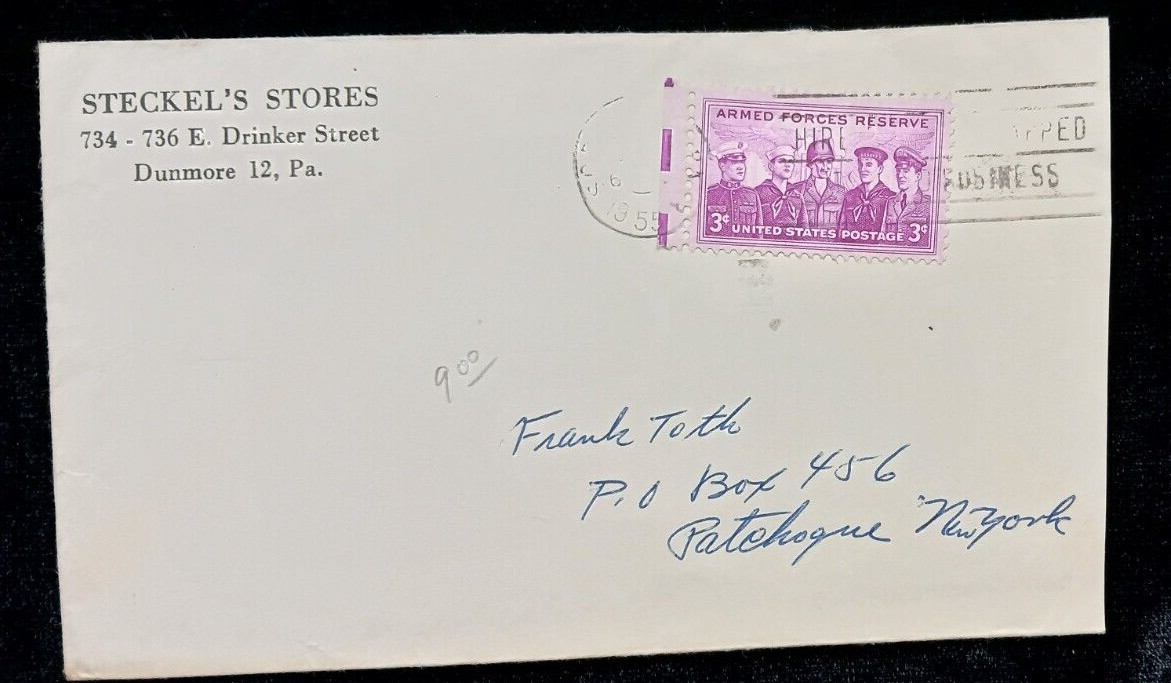 STECKEL'S STORES
734 - 736 E. Drinker Street
Dunmore 12, Pa.
6
1955
HIRE
BUSINESS
ARMED FORCES RESERVE
3¢ UNITED STATES POSTAGE 3¢
9 00
Frank Toth
P.O Box 456
Patchogue New York